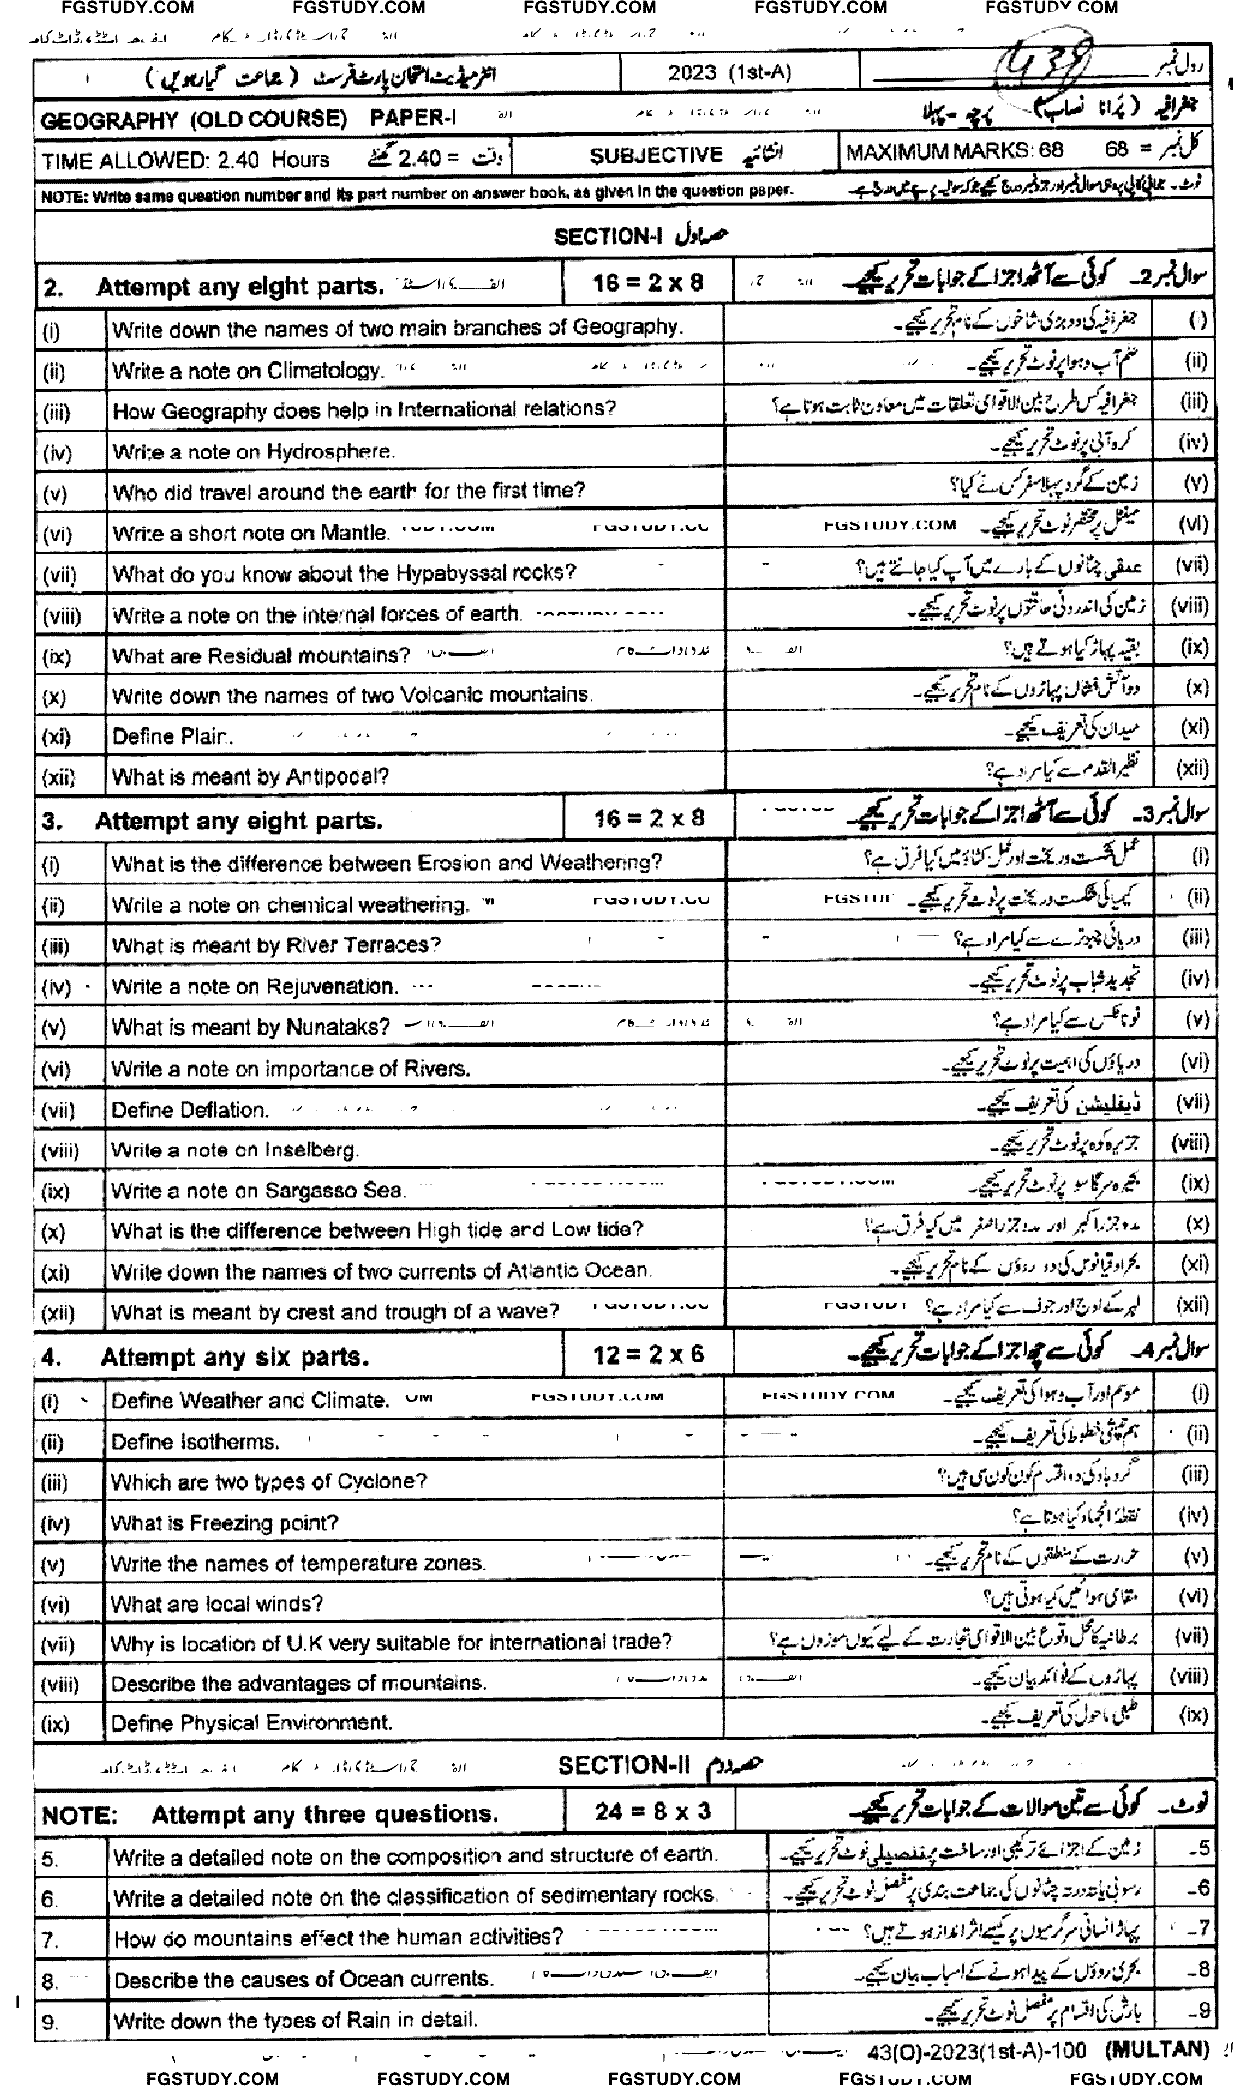 FGSTUDY.COM FGSTUDY.COM FGSTUDY.COM FGSTUDY.COM FGSTUDY.COM
انٹرمیڈیٹ امتحان پارٹ فرسٹ (جماعت گیارہویں) 2023 (1st-A) رول نمبر
GEOGRAPHY (OLD COURSE) PAPER-I جغرافیہ (پرانا نصاب) پرچہ - پہلا
TIME ALLOWED: 2.40 Hours وقت = 2.40 گھنٹے SUBJECTIVE انشائیہ MAXIMUM MARKS: 68 کل نمبر = 68
NOTE: Write same question number and its part number on answer book, as given in the question paper.
SECTION-I حصہ اول
2. Attempt any eight parts. 16 = 2 x 8 سوال نمبر 2۔ کوئی سے آٹھ اجزا کے جوابات تحریر کیجیے۔
(i) Write down the names of two main branches of Geography. جغرافیہ کی دو بڑی شاخوں کے نام تحریر کیجیے۔ (i)
(ii) Write a note on Climatology. علم آب و ہوا پر نوٹ تحریر کیجیے۔ (ii)
(iii) How Geography does help in International relations? جغرافیہ کس طرح بین الاقوامی تعلقات میں معاون ثابت ہوتا ہے؟ (iii)
(iv) Write a note on Hydrosphere. کرہ آبی پر نوٹ تحریر کیجیے۔ (iv)
(v) Who did travel around the earth for the first time? زمین کے گرد پہلا سفر کس نے کیا؟ (v)
(vi) Write a short note on Mantle. FGSTUDY.COM مینٹل پر مختصر نوٹ تحریر کیجیے۔ (vi)
(vii) What do you know about the Hypabyssal rocks? عمقی چٹانوں کے بارے میں آپ کیا جانتے ہیں؟ (vii)
(viii) Write a note on the internal forces of earth. زمین کی اندرونی طاقتوں پر نوٹ تحریر کیجیے۔ (viii)
(ix) What are Residual mountains? بقیہ پہاڑ کیا ہوتے ہیں؟ (ix)
(x) Write down the names of two Volcanic mountains. دو آتش فشاں پہاڑوں کے نام تحریر کیجیے۔ (x)
(xi) Define Plain. میدان کی تعریف کیجیے۔ (xi)
(xii) What is meant by Antipocal? نظیر القدم سے کیا مراد ہے؟ (xii)
3. Attempt any eight parts. 16 = 2 x 8 سوال نمبر 3۔ کوئی سے آٹھ اجزا کے جوابات تحریر کیجیے۔
(i) What is the difference between Erosion and Weathering? عمل شکست و ریخت اور عمل کٹاؤ میں کیا فرق ہے؟ (i)
(ii) Write a note on chemical weathering. کیمیائی شکست و ریخت پر نوٹ تحریر کیجیے۔ (ii)
(iii) What is meant by River Terraces? دریائی چبوترے سے کیا مراد ہے؟ (iii)
(iv) Write a note on Rejuvenation. تجدید شباب پر نوٹ تحریر کیجیے۔ (iv)
(v) What is meant by Nunataks? نوناٹکس سے کیا مراد ہے؟ (v)
(vi) Write a note on importance of Rivers. دریاؤں کی اہمیت پر نوٹ تحریر کیجیے۔ (vi)
(vii) Define Deflation. ڈیفلیشن کی تعریف کیجیے۔ (vii)
(viii) Write a note on Inselberg. جزیرہ کوہ پر نوٹ تحریر کیجیے۔ (viii)
(ix) Write a note on Sargasso Sea. بحیرہ سرگاسو پر نوٹ تحریر کیجیے۔ (ix)
(x) What is the difference between High tide and Low tide? مدوجزر اکبر اور مدوجزر اصغر میں کیا فرق ہے؟ (x)
(xi) Write down the names of two currents of Atlantic Ocean. بحر اوقیانوس کی دو روؤں کے نام تحریر کیجیے۔ (xi)
(xii) What is meant by crest and trough of a wave? لہر کے اوج اور جوف سے کیا مراد ہے؟ (xii)
4. Attempt any six parts. 12 = 2 x 6 سوال نمبر 4۔ کوئی سے چھ اجزا کے جوابات تحریر کیجیے۔
(i) Define Weather and Climate. FGSTUDY.COM FGSTUDY.COM موسم اور آب و ہوا کی تعریف کیجیے۔ (i)
(ii) Define Isotherms. ہم تپشی خطوط کی تعریف کیجیے۔ (ii)
(iii) Which are two types of Cyclone? گردباد کی دو اقسام کون کون سی ہیں؟ (iii)
(iv) What is Freezing point? نقطہ انجماد کیا ہوتا ہے؟ (iv)
(v) Write the names of temperature zones. حرارت کے منطقوں کے نام تحریر کیجیے۔ (v)
(vi) What are local winds? مقامی ہوائیں کیا ہوتی ہیں؟ (vi)
(vii) Why is location of U.K very suitable for international trade? برطانیہ کا محل وقوع بین الاقوامی تجارت کے لیے کیوں موزوں ہے؟ (vii)
(viii) Describe the advantages of mountains. پہاڑوں کے فوائد بیان کیجیے۔ (viii)
(ix) Define Physical Environment. طبعی ماحول کی تعریف کیجیے۔ (ix)
SECTION-II حصہ دوم
NOTE: Attempt any three questions. 24 = 8 x 3 نوٹ۔ کوئی سے تین سوالات کے جوابات تحریر کیجیے۔
5. Write a detailed note on the composition and structure of earth. زمین کے اجزائے ترکیبی اور ساخت پر تفصیلی نوٹ تحریر کیجیے۔ -5
6. Write a detailed note on the classification of sedimentary rocks. چٹانوں کی جماعت بندی پر مفصل نوٹ تحریر کیجیے۔ -6
7. How do mountains effect the human activities? پہاڑ انسانی سرگرمیوں پر کیسے اثر انداز ہوتے ہیں؟ -7
8. Describe the causes of Ocean currents. بحری روؤں کے پیدا ہونے کے اسباب بیان کیجیے۔ -8
9. Write down the types of Rain in detail. بارش کی اقسام پر مفصل نوٹ تحریر کیجیے۔ -9
43(O)-2023(1st-A)-100 (MULTAN)
FGSTUDY.COM FGSTUDY.COM FGSTUDY.COM FGSTUDY.COM FGSTUDY.COM